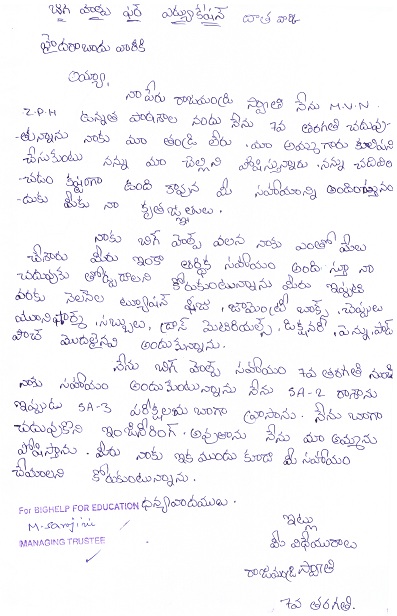 బిగ్ హెల్ప్ ఫర్ ఎడ్యుకేషన్ దాత వారికి
హైదరాబాదు వారికి
అయ్యా,
నా పేరు రాజముద్రి స్వాతి నేను M.V.N.
Z.P.H ఉన్నత పాఠశాల నందు నేను 7వ తరగతి చదువు-
-తున్నాను నాకు మా తండ్రి లేరు. మా అమ్మగారు కూలిపని
చేసుకుంటు నన్ను మా చెల్లిని పోషిస్తున్నారు. నన్ను చదివిం
-చడం కష్టంగా ఉంది కావున మీ సహాయాన్ని అందిస్తున్నం
-దుకు మీకు నా కృతజ్ఞతలు.
నాకు బిగ్ హెల్ప్ వలన నాకు ఎంతో మేలు
చేసారు మీరు ఇంకా ఆర్థిక సహాయం అందిస్తూ నా
చదువుకు తోడ్పడాలని కోరుకుంటున్నాను మీరు ఇప్పటి
వరకు నెలనెల ట్యూషన్ ఫీజు, జామెంట్రీ బాక్స్, చెప్పులు
యూనిఫార్మ్, సబ్బులు, డ్రాస్ మెటిరియల్స్, డిక్షనరీ, పెన్ను, పౌట్
పౌచ్ మొదలైనవి అందుకున్నాను.
నేను బిగ్ హెల్ప్ సహాయం 7వ తరగతి నుండి
నాకు సహాయం అందుకుంటున్నాను నేను SA-2 రాశాను
ఇప్పుడు SA-3 పరీక్షలు బాగా వ్రాసాను. నేను బాగా
చదువుకుని ఇంజనీరింగ్. అవుతాను నేను మా అమ్మను
పోషిస్తాను. మీరు నాకు ఇక ముందు కూడా మీ సహాయం
చేయాలని కోరుకుంటున్నాను.
For BIGHELP FOR EDUCATION ధన్యవాదములు.
M. Sarojini
MANAGING TRUSTEE
ఇట్లు
మీ విధేయురాలు
రాజముద్రి స్వాతి
7వ తరగతి.